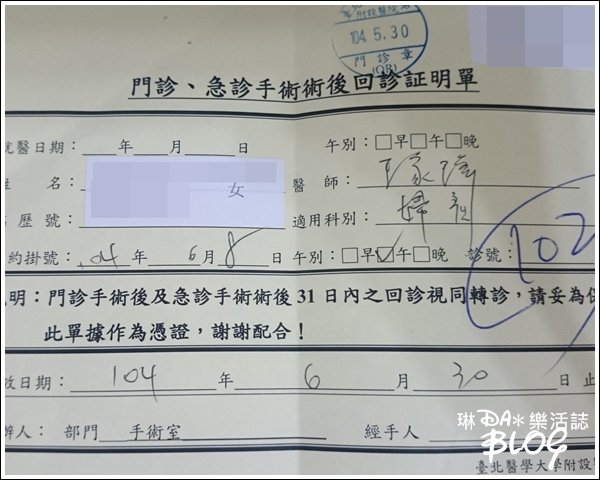 104.5.30
門診章
(OR)
門診、急診手術術後回診証明單
就醫日期： 年 月 日 午別：□早□午□晚
姓 名： 女 醫 師：
病歷號： 適用科別：婦產
預約掛號：104 年 6 月 8 日 午別：□早☑午□晚 診號：102
說明：門診手術後及急診手術術後 31 日內之回診視同轉診，請妥為保
此單據作為憑證，謝謝配合！
有效日期： 104 年 6 月 30 日 止
承辦人： 部門 手術室 經手人
琳DA*樂活誌
BLOG
臺北醫學大學附設